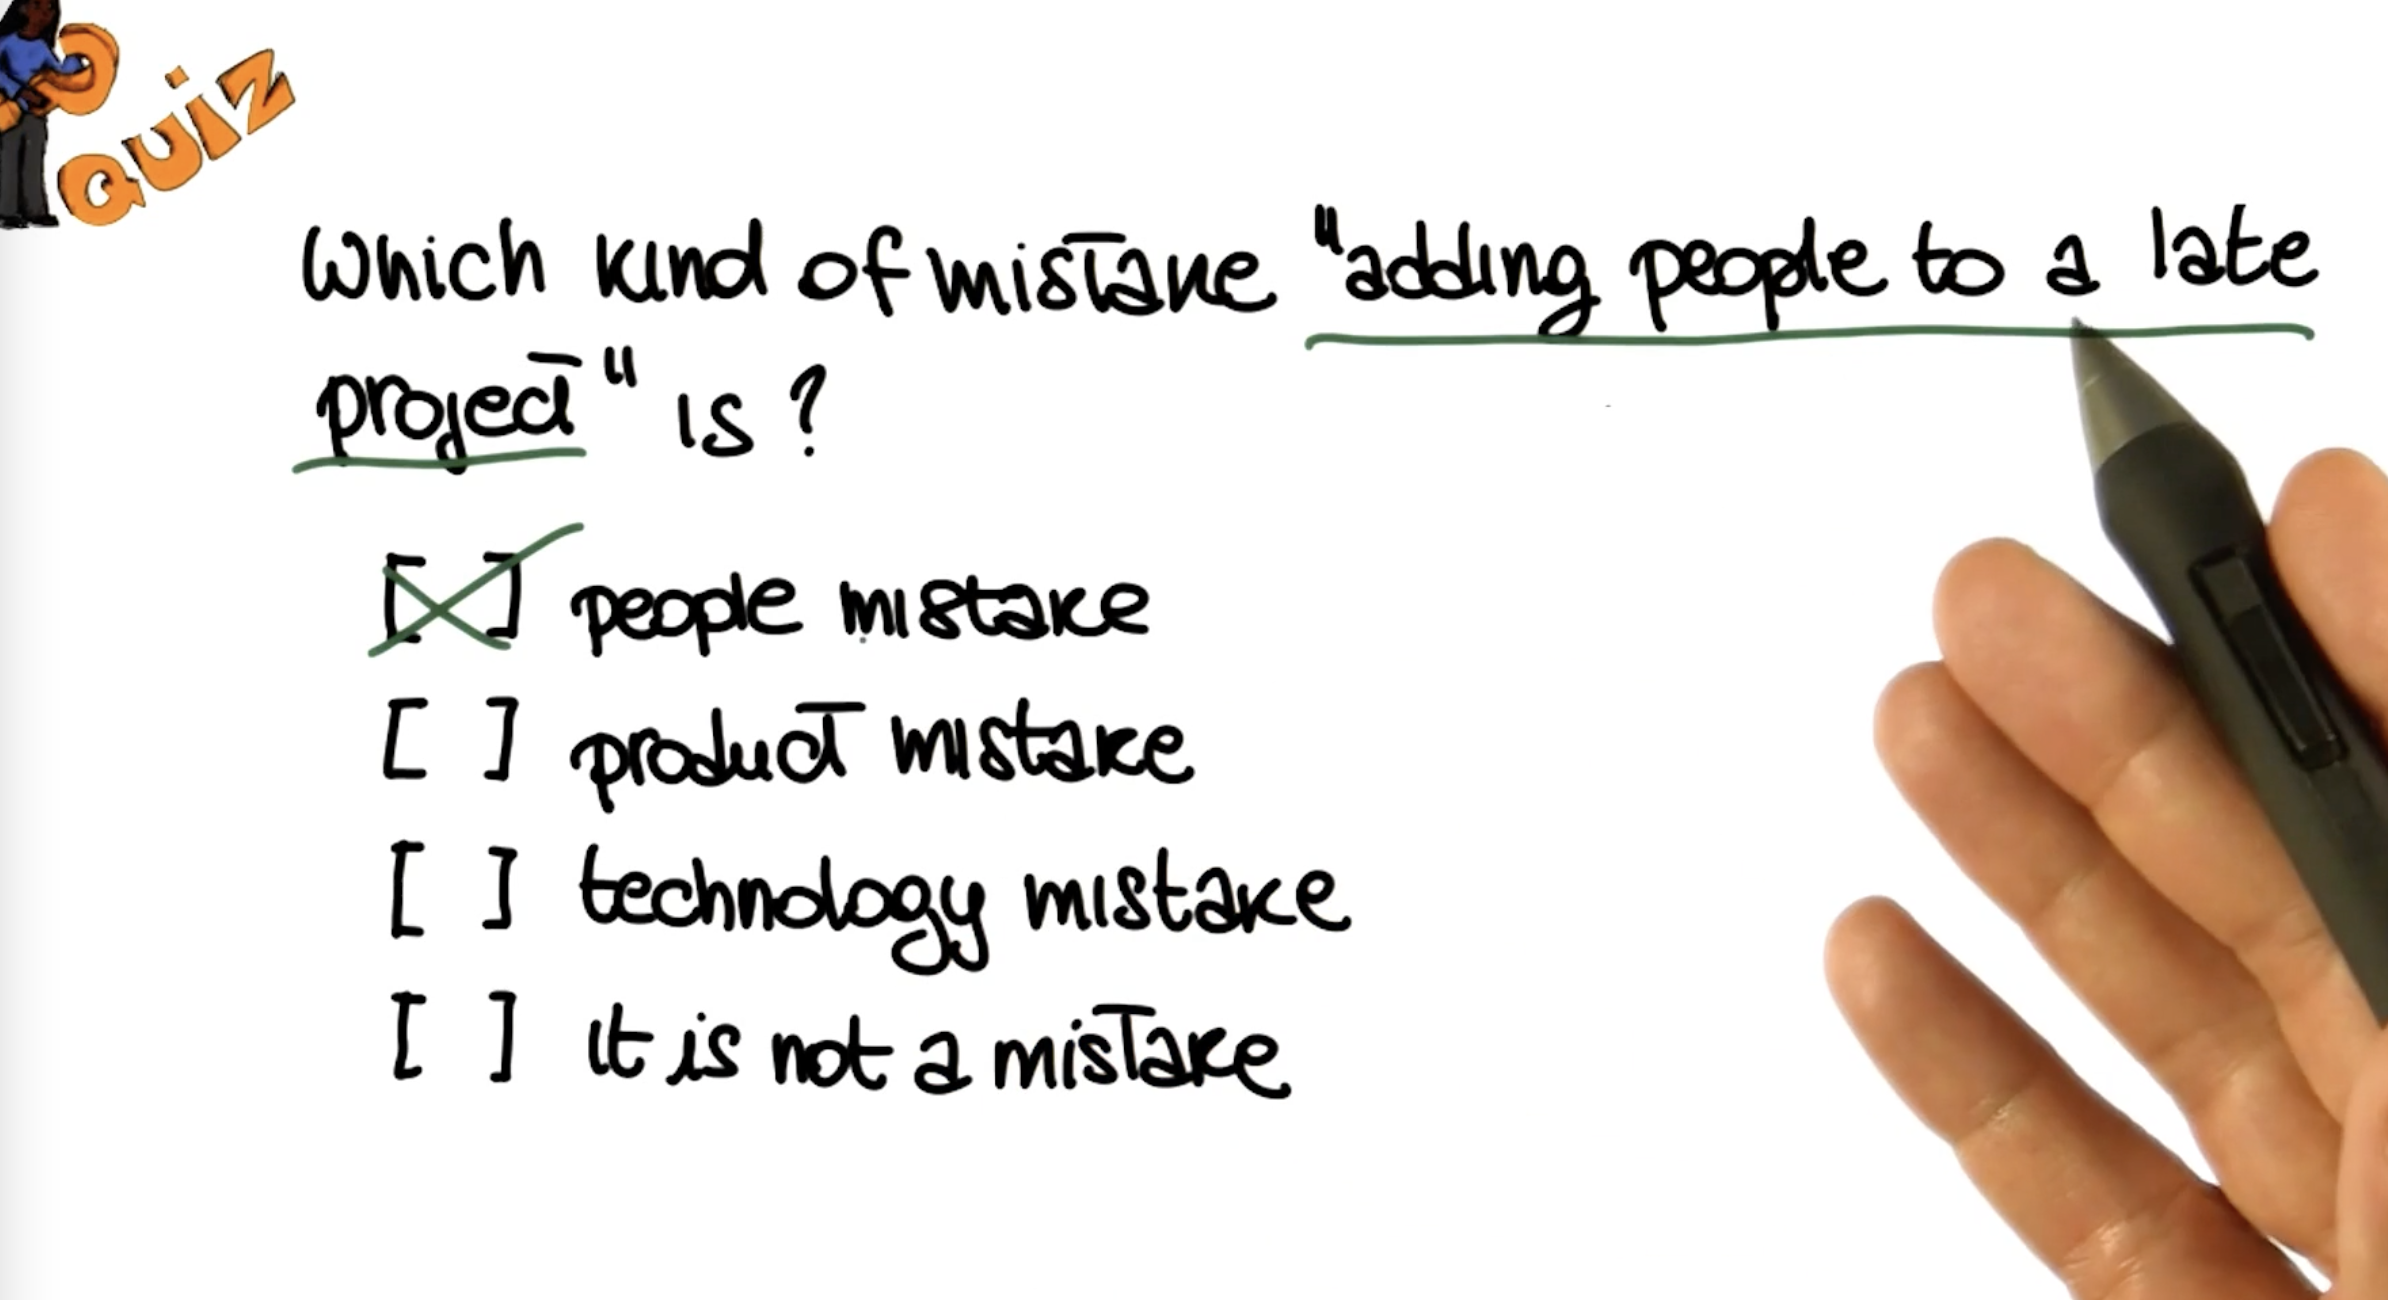 QUIZ
Which kind of mistake "adding people to a late
project" is?
[X] people mistake
[ ] product mistake
[ ] technology mistake
[ ] it is not a mistake